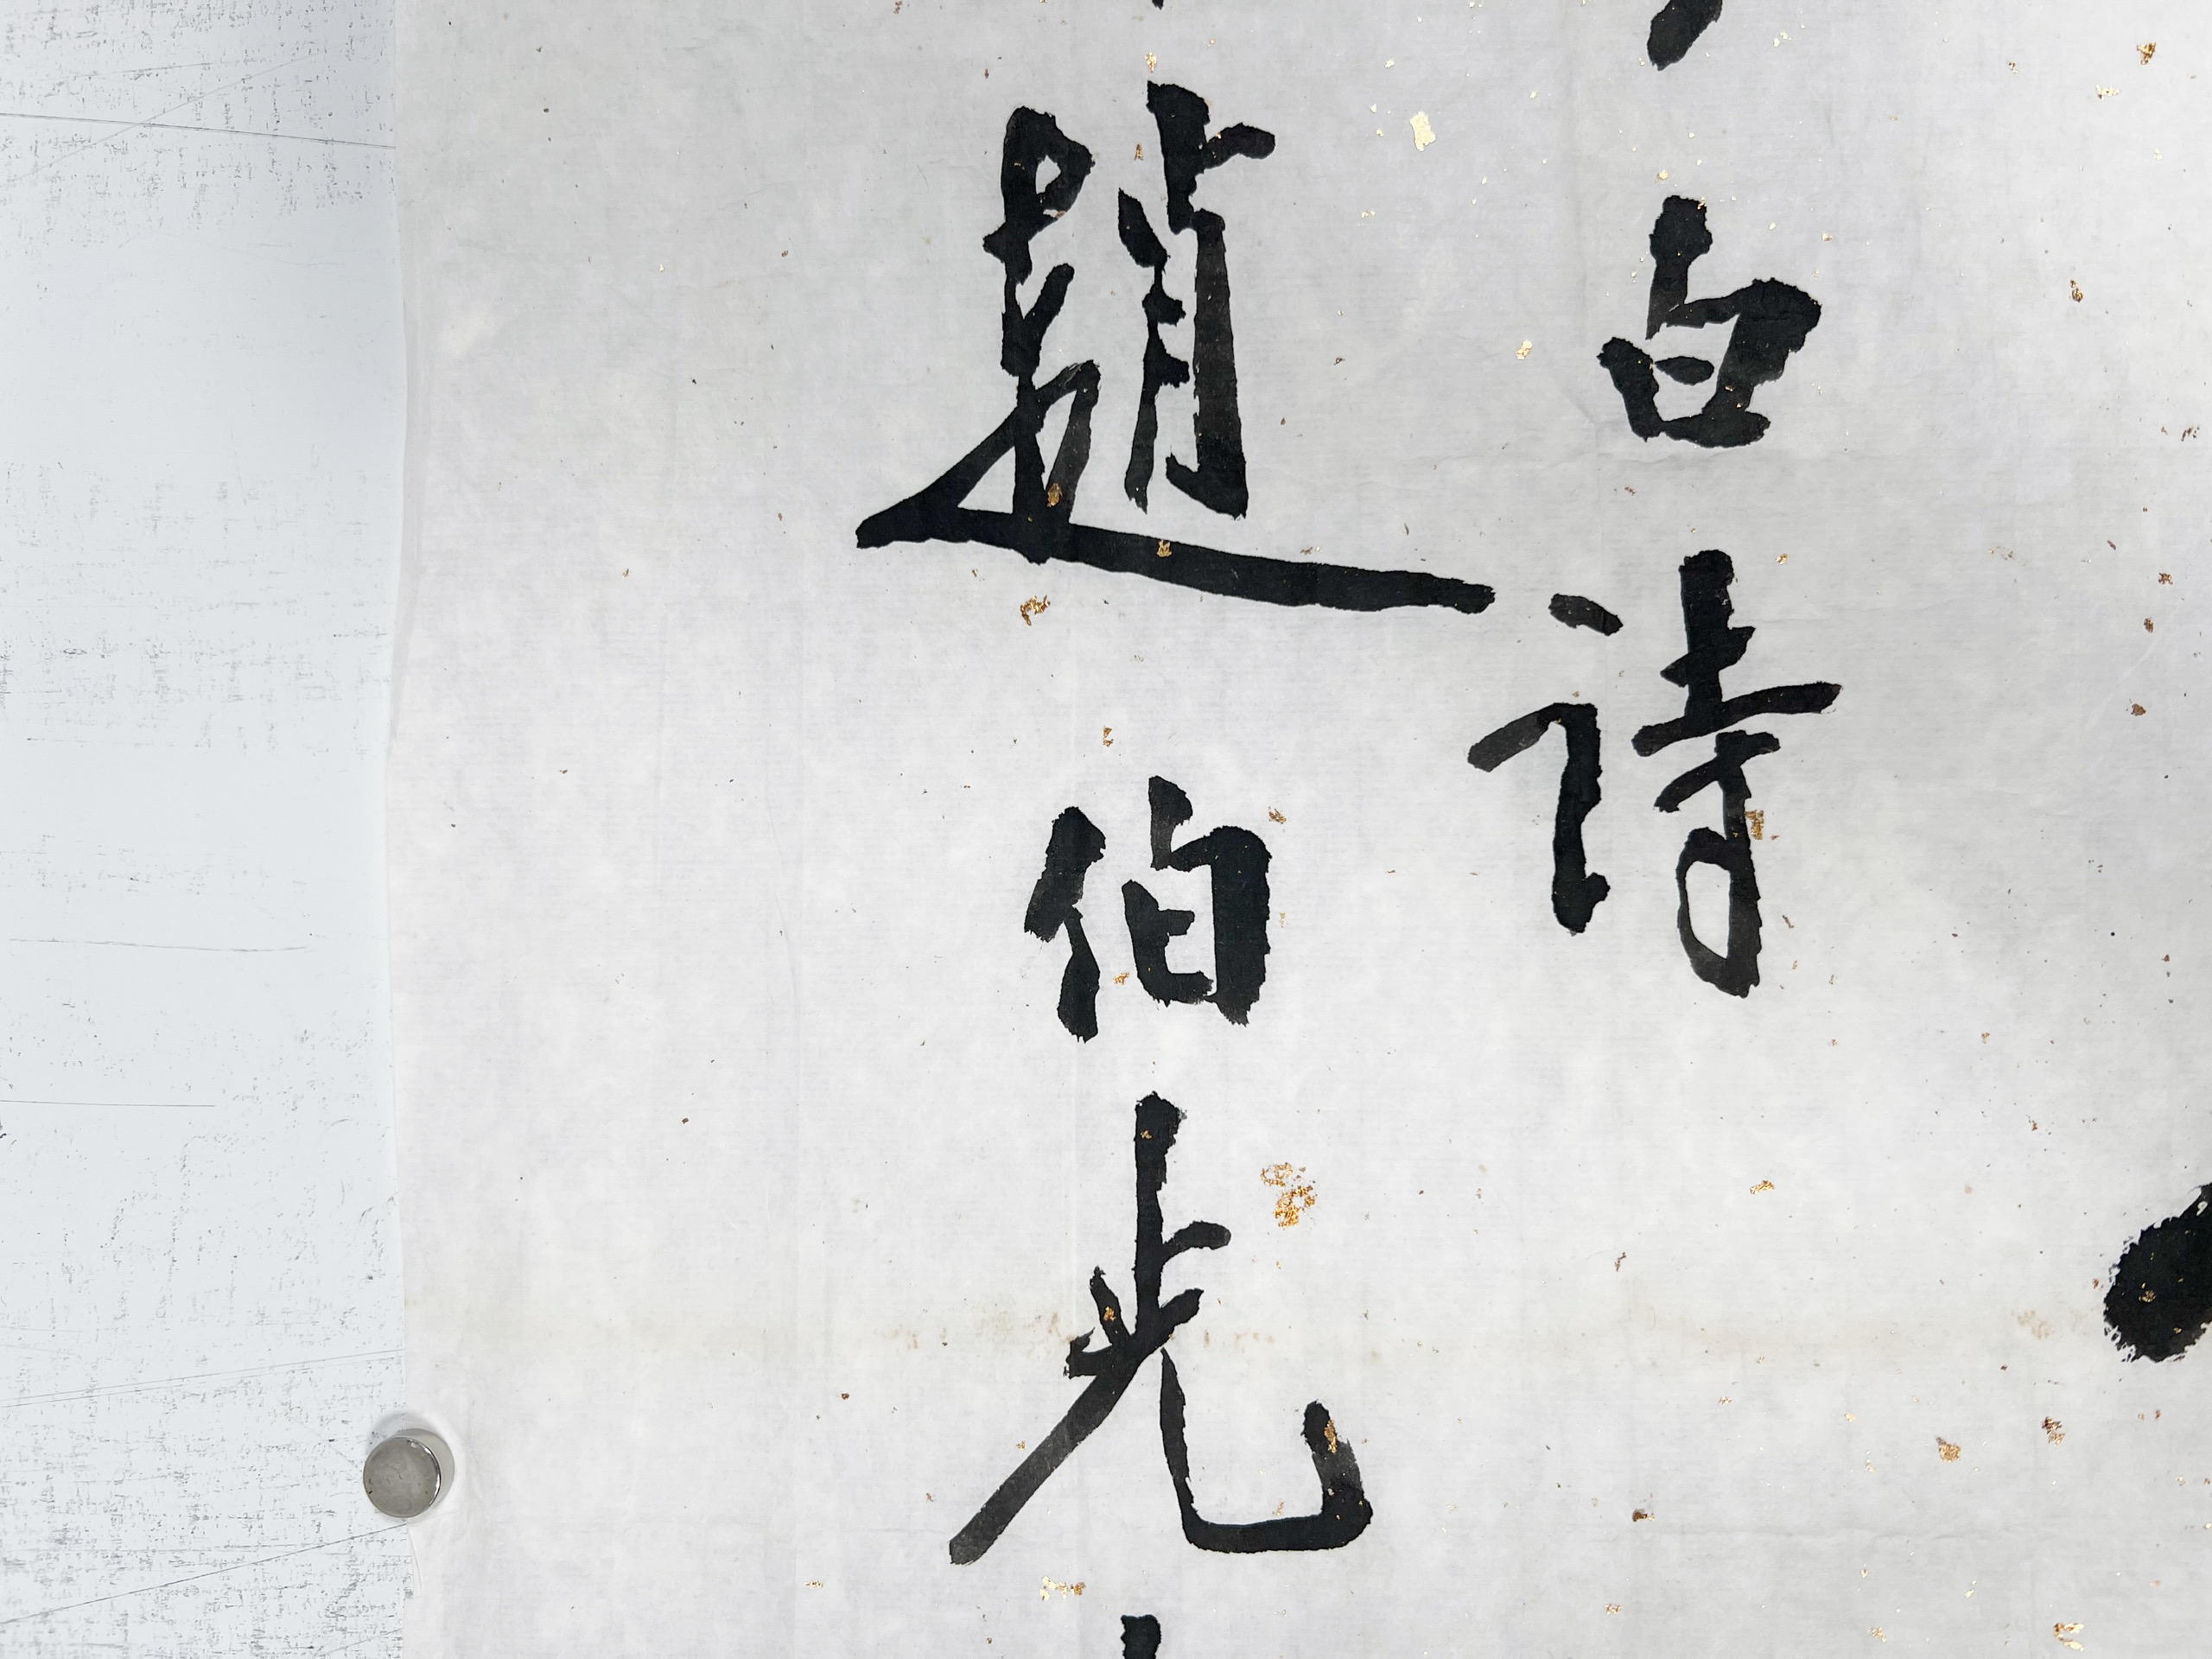 白詩
趙伯光